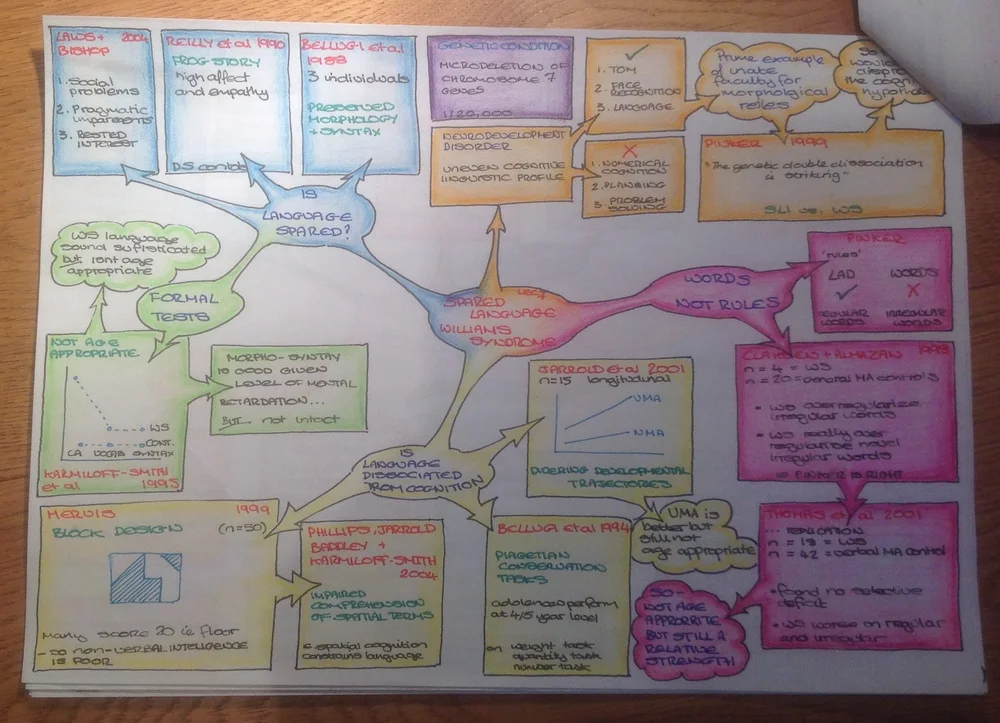 LAWS + 2004
BISHOP
1. Social
problems
2. Pragmatic
impairments
3. RESTED
INTEREST
REILLY et al 1990
FROG STORY
high affect
and empathy
DS contols
BELLUGI et al
1988
3 individuals
PRESERVED
MORPHOLOGY
+ SYNTAX
GENETIC CONDITION
MICRODELETION OF
CHROMOSOME 7
GENES
1/20,000
NEURODEVELOPMENT
DISORDER
UNEVEN COGNITIVE
LINGUISTIC PROFILE
✓
1. TOM
2. FACE
RECOGNITION
3. LANGUAGE
X
1. NUMERICAL
COGNITION
2. PLANNING
3. PROBLEM
SOLVING
Prime example
of inate
faculty for
morphological
rules
So
would
the cogn
hypoth
PINKER 1999
"The genetic double dissociation
is striking"
SLI vs. WS
IS
LANGUAGE
SPARED?
WS language
sound sufisticated
but isnt age
appropriate
FORMAL
TESTS
NOT AGE
APPROPRIATE
WS
CONT.
CA VOCAB SYNTAX
KARMILOFF-SMITH
et al 1995
MORPHO-SYNTAX
IS GOOD GIVEN
LEVEL OF MENTAL
RETARDATION...
BUT... not intact
LEC 7
SPARED
LANGUAGE
WILLIAMS
SYNDROME
WORDS
NOT RULES
PINKER
'RULES'
LAD WORDS
✓ X
REGULAR IRREGULAR
WORDS WORDS
CLAHSEN + ALMAZAN 1998
n = 4 = WS
n = 20 = general MA controls
• WS overregularize
irregular words
• WS really over
regularise novel
irregular words
⇒ PINKER IS RIGHT
THOMAS et al 2001
... REPLICATION
n = 18 = WS
n = 42 = verbal MA control
• found no selective
deficit
• WS worse on regular
and irregular
SO -
NOT AGE
APPROPRITE
BUT STILL A
RELATIVE
STRENGTH
IS
LANGUAGE
DISSOCIATED
FROM COGNITION
JARROLD et al 2001
n=15 longitudinal
VMA
NMA
DIVERING DEVELOPMENTAL
TRAJECTORIES
VMA is
better but
still not
age appropriate
MERVIS 1999
BLOCK DESIGN (n=50)
Many score 20 ie floor
- so NON-VERBAL INTELLIGENCE
IS POOR
PHILLIPS, JARROLD
BADDLEY +
KARMILOFF-SMITH
2004
IMPAIRED
COMPREHENSION
OF SPATIAL TERMS
∴ spatial cognition
constrains language
BELLUGI et al 1994
PIAGETIAN
CONSERVATION
TASKS
adolences perform
at 4/5 year level
on weight task
quantity task
number task